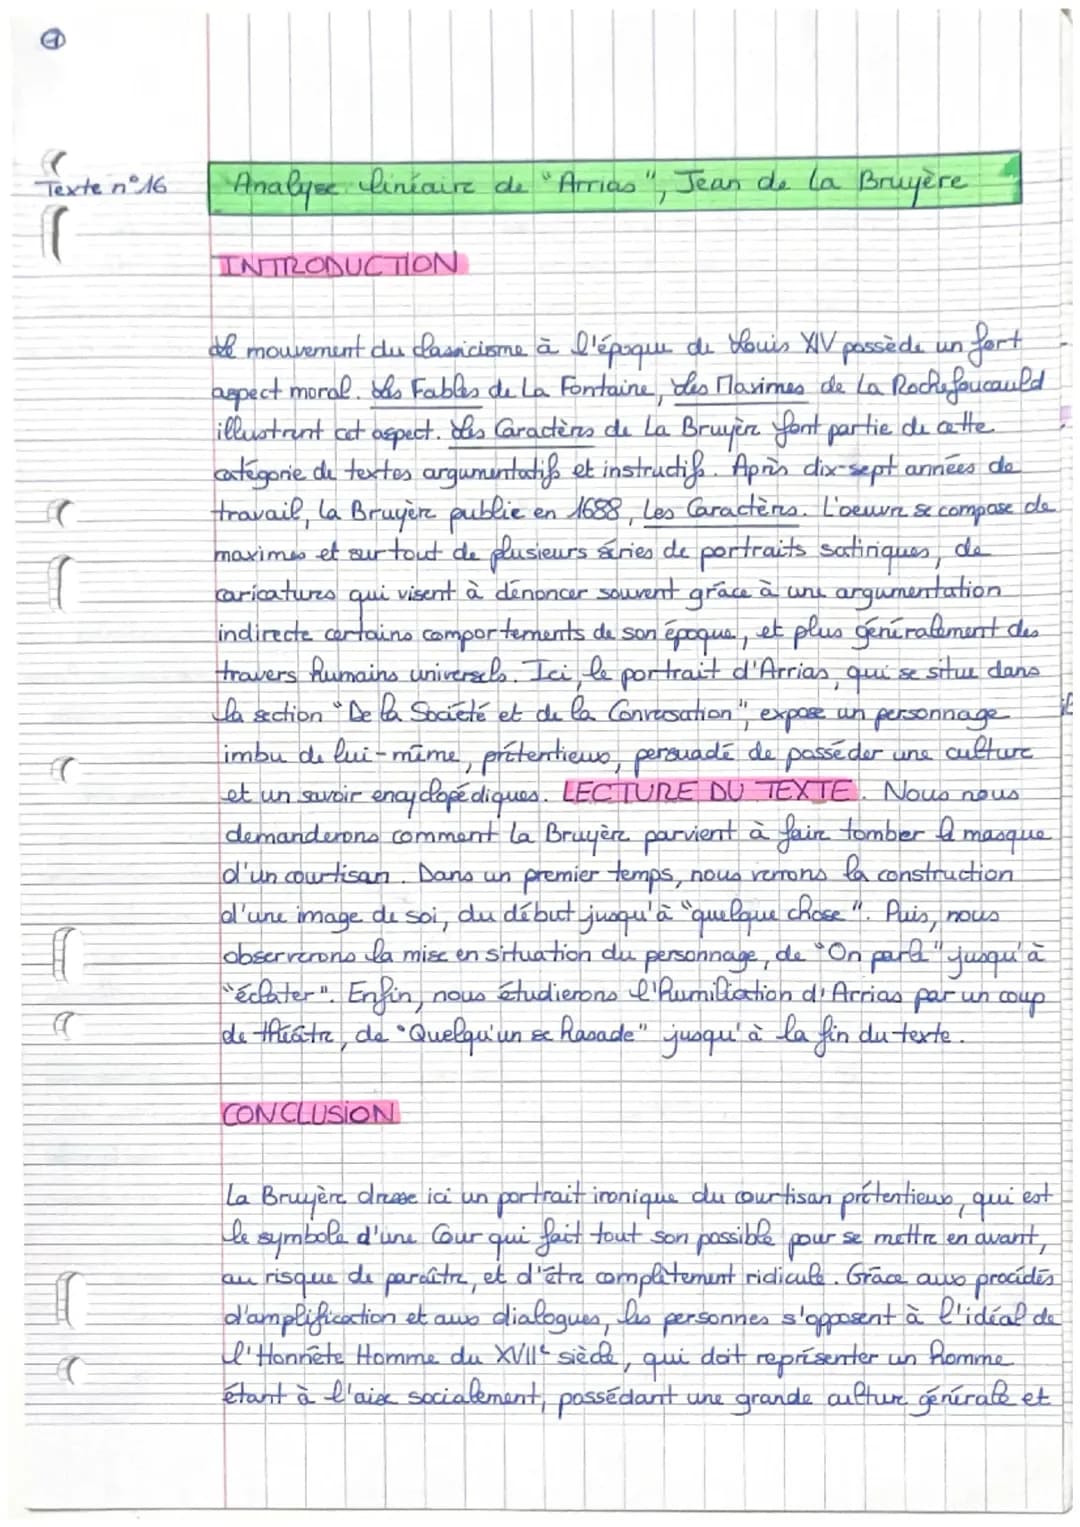 1
Texte n°16
Analyse linéaire de "Arrias", Jean de La Bruyère
INTRODUCTION
Le mouvement du classicisme à l'époque de Louis XIV possède un fort
aspect moral. Les Fables de La Fontaine, Les Maximes de La Rochefoucauld
illustrent cet aspect. Les Caractères de La Bruyère font partie de cette
catégorie de textes argumentatifs et instructifs. Après dix-sept années de
travail, La Bruyère publie en 1688, Les Caractères. L'oeuvre se compose de
maximes et surtout de plusieurs séries de portraits satiriques, de
caricatures qui visent à dénoncer souvent grâce à une argumentation
indirecte certains comportements de son époque, et plus généralement des
travers humains universels. Ici, le portrait d'Arrias, qui se situe dans
la section "De la Société et de la Conversation", expose un personnage
imbu de lui-même, prétentieux, persuadé de posséder une culture
et un savoir encyclopédiques. LECTURE DU TEXTE. Nous nous
demanderons comment La Bruyère parvient à faire tomber le masque
d'un courtisan. Dans un premier temps, nous verrons la construction
d'une image de soi, du début jusqu'à "quelque chose". Puis, nous
observerons la mise en situation du personnage, de "On parle" jusqu'à
"éclater". Enfin, nous étudierons l'humiliation d'Arrias par un coup
de théâtre, de "Quelqu'un se hasade" jusqu'à la fin du texte.
CONCLUSION
La Bruyère dresse ici un portrait ironique du courtisan prétentieux, qui est
le symbole d'une Cour qui fait tout son possible pour se mettre en avant,
au risque de paraître, et d'être complètement ridicule. Grâce aux procédés
d'amplification et aux dialogues, les personnes s'opposent à l'idéal de
l'Honnête Homme du XVIIe siècle, qui doit représenter un homme
étant à l'aise socialement, possédant une grande culture générale et